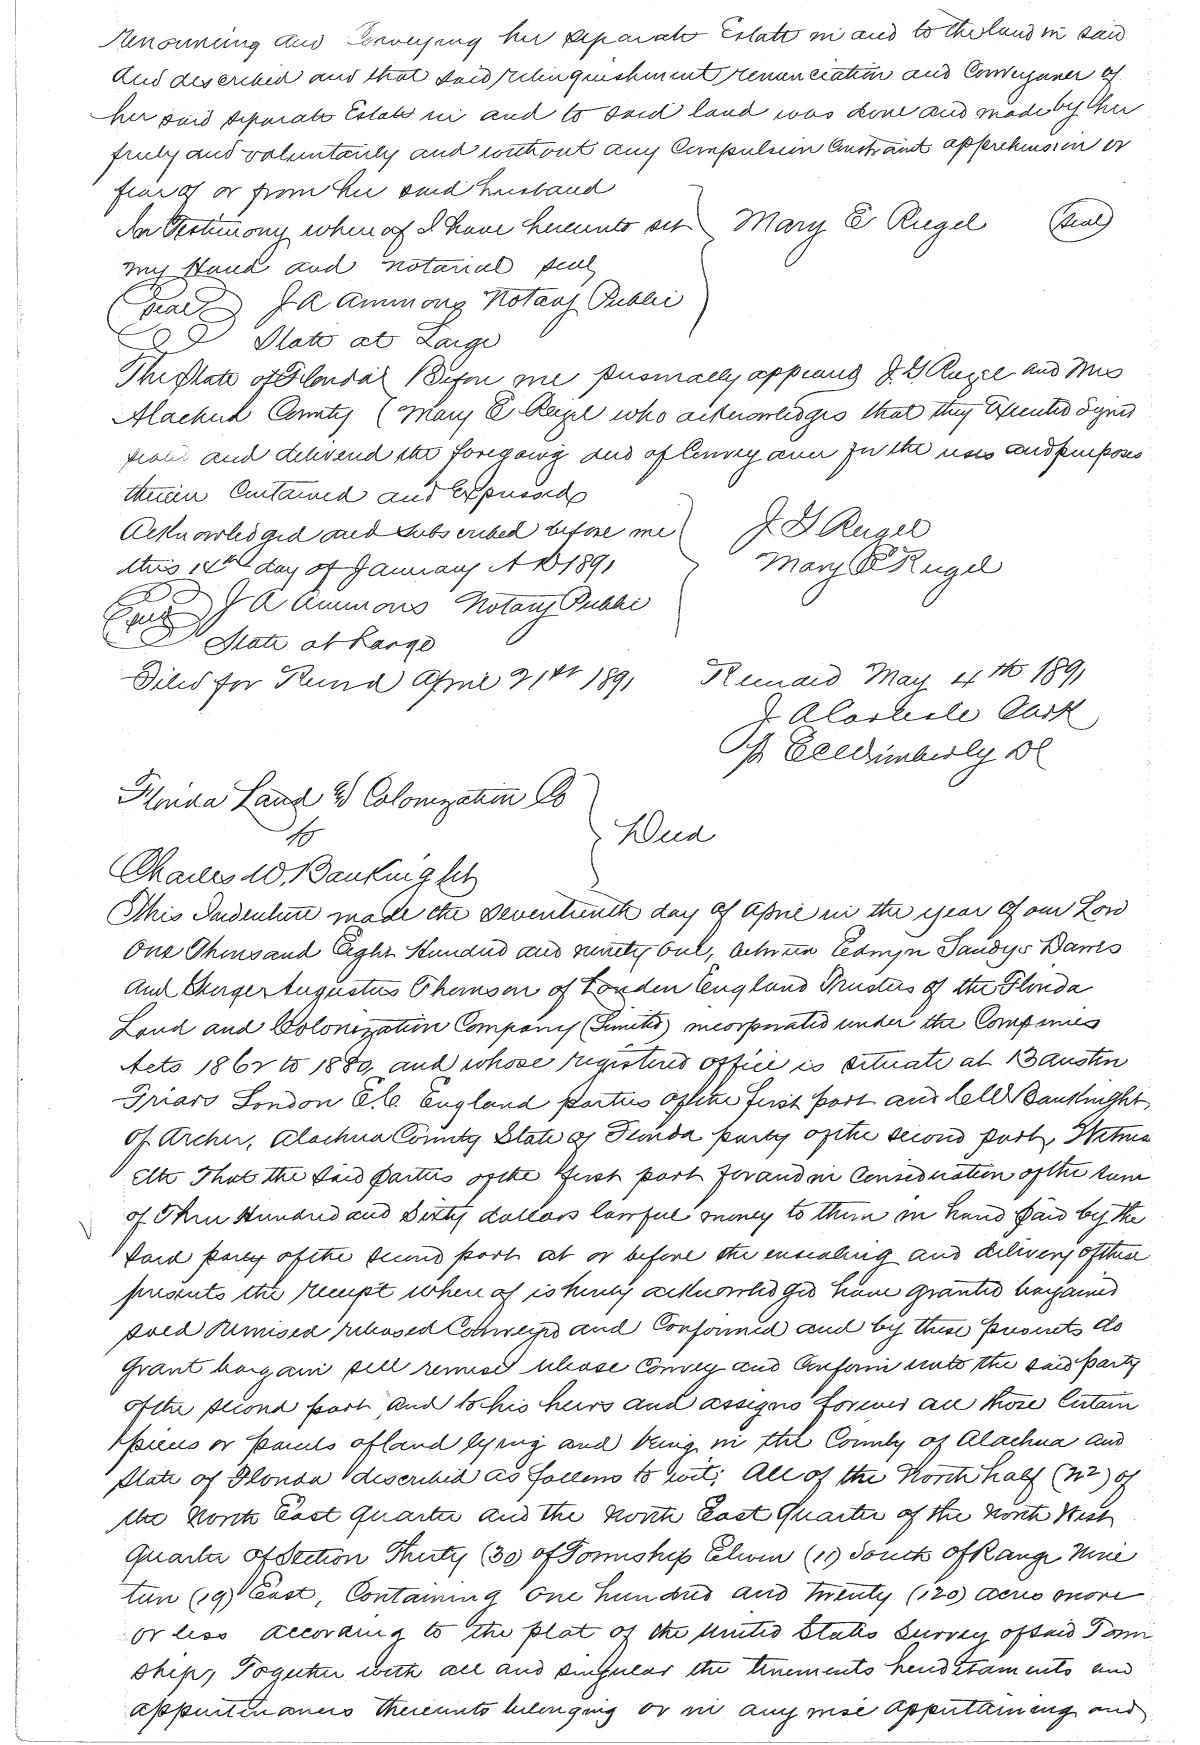 renouncing and Conveying her separate Estate in and to the land in said
And described and that said relinquishment renunciation and Conveyance of
her said separate Estate in and to said land was done and made by her
freely and voluntarily and without any Compulsion Constraint apprehension or
fear of or from her said husband
In Testimony where of I have hereunto set
my Hand and notarial seal
Mary E Riegel (Seal)
(Seal) J A Ammons Notary Public
State at Large
The State of Florida } Before me personally appeared J G Riegel and Mrs
Alachua County { Mary E Riegel who acknowledges that they Executed Signed
sealed and delivered the foregoing deed of Conveyance for the uses and purposes
therein Contained and Expressed
Acknowledged and subscribed before me
this 14th day of January A D 1891
J G Riegel
Mary E Riegel
(Seal) J A Ammons Notary Public
State at Large
Filed for Record April 21st 1891 Record May 4th 1891
J A Carlisle Clerk
Pr E C Wimberly DC
Florida Land & Colonization Co
to
Deed
Charles W. Bauknight
This Indenture made the Seventeenth day of April in the year of our Lord
One Thousand Eight Hundred and ninety One, between Edwyn Sandys Dawes
and George Augustus Thomson of London England Trustees of the Florida
Land and Colonization Company (Limited) incorporated under the Companies
Acts 1862 to 1880, and whose registered office is situate at 13 Austin
Friars London E.C. England parties of the first part and C W Bauknight
of Archer, Alachua County State of Florida party of the second part, Witness
eth That the said parties of the first part for and in Consideration of the sum
of Three Hundred and Sixty dollars lawful money to them in hand paid by the
said party of the second part at or before the ensealing and delivery of these
presents the receipt where of is hereby acknowledged have granted bargained
sold remised released Conveyed and Confirmed and by these presents do
grant bargain sell remise release Convey and Confirm unto the said party
of the second part and to his heirs and assigns forever all those Certain
pieces or parcels of land lying and being in the County of Alachua and
State of Florida described as follows to wit; All of the North half (N2) of
the North East Quarter and the North East Quarter of the North West
Quarter of Section Thirty (30) of Township Eleven (11) South of Range Nine
teen (19) East, Containing One hundred and twenty (120) acres more
or less according to the plat of the United States Survey of said Town
ship, Together with all and singular the tenements hereditaments and
appurtenances thereunto belonging or in any wise appertaining and